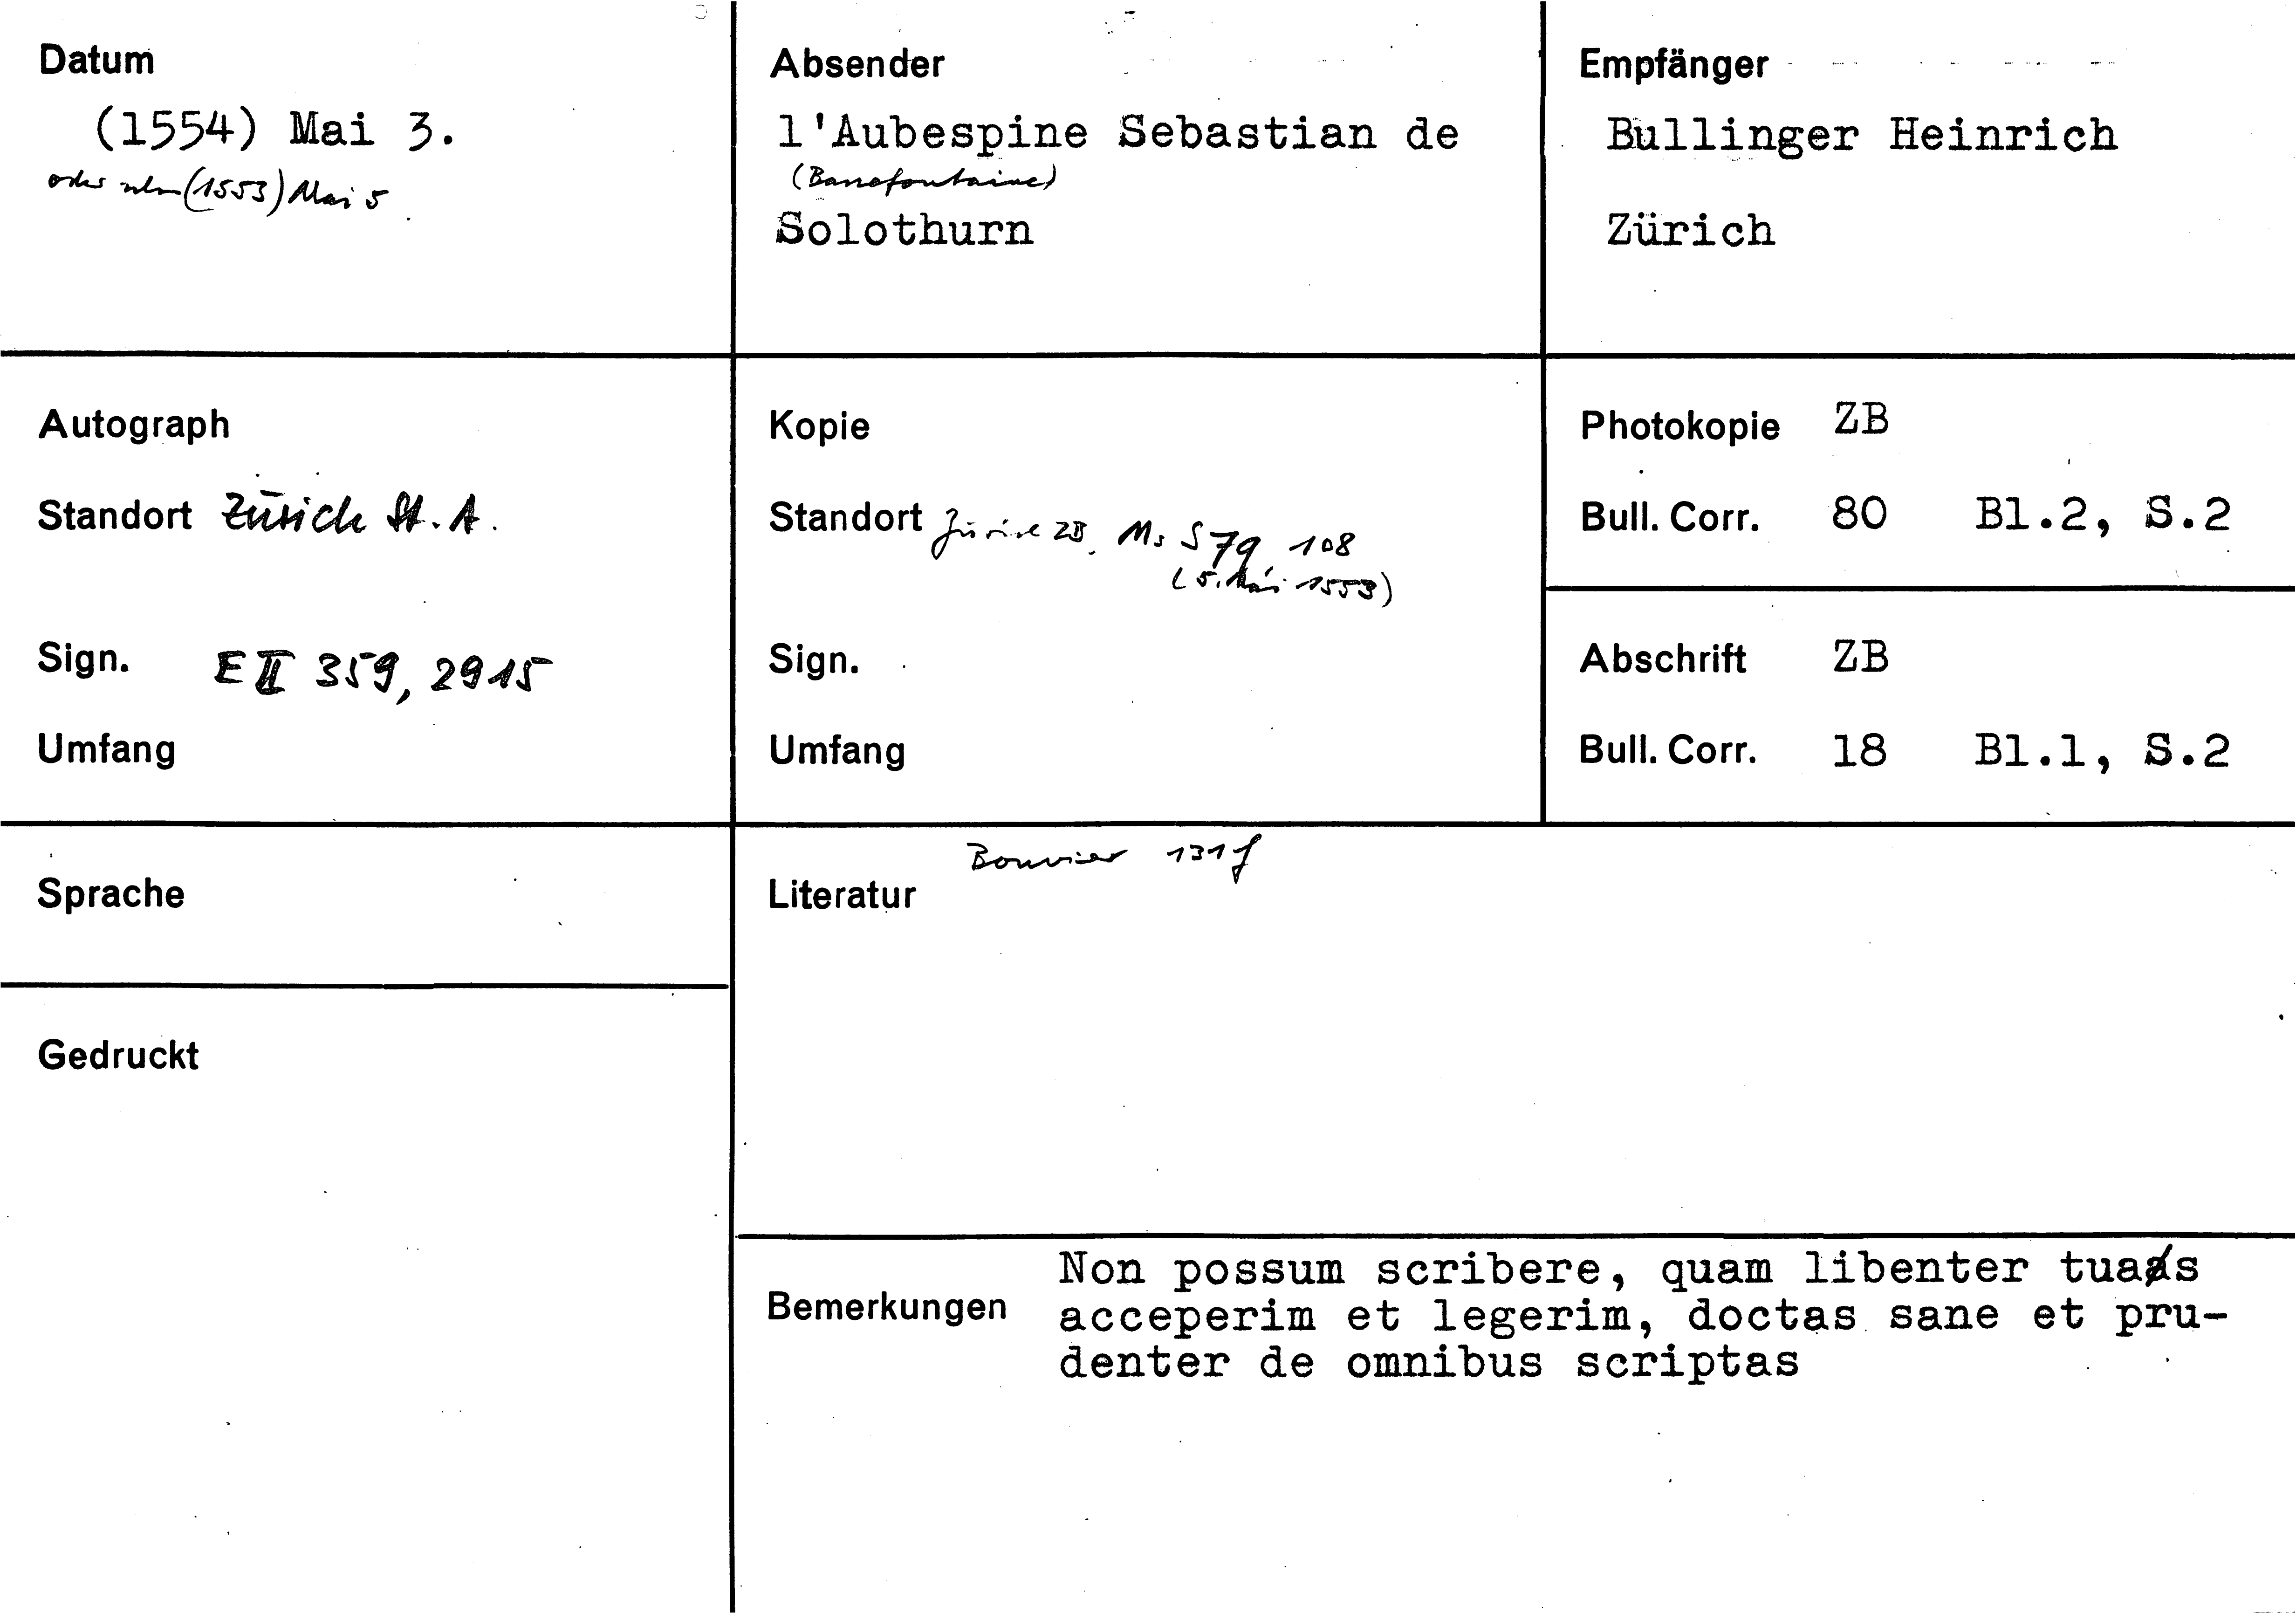 Datum
(1554) Mai 3.
oder (1553) Mai 5
Absender
l'Aubespine Sebastian de
(Bassefontaine)
Solothurn
Empfänger
Bullinger Heinrich
Zürich
Autograph
Standort Zürich St. A.
Sign. E II 359, 2915
Umfang
Kopie
Standort Zürich ZB, Ms S 79, 108
(5. Mai 1553)
Sign.
Umfang
Photokopie ZB
Bull. Corr. 80 Bl.2, S.2
Abschrift ZB
Bull. Corr. 18 Bl.1, S.2
Sprache
Gedruckt
Bouvier 131f
Literatur
Bemerkungen
Non possum scribere, quam libenter tuas
acceperim et legerim, doctas sane et pru-
denter de omnibus scriptas